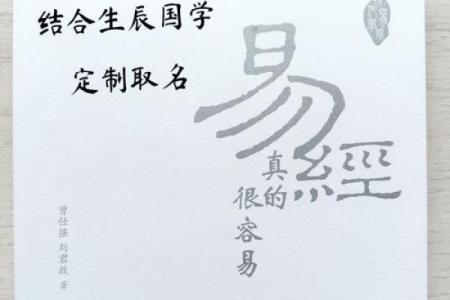 结合生辰国学
定制取名
易經
真的
很容易
曾仕强 刘君政 著